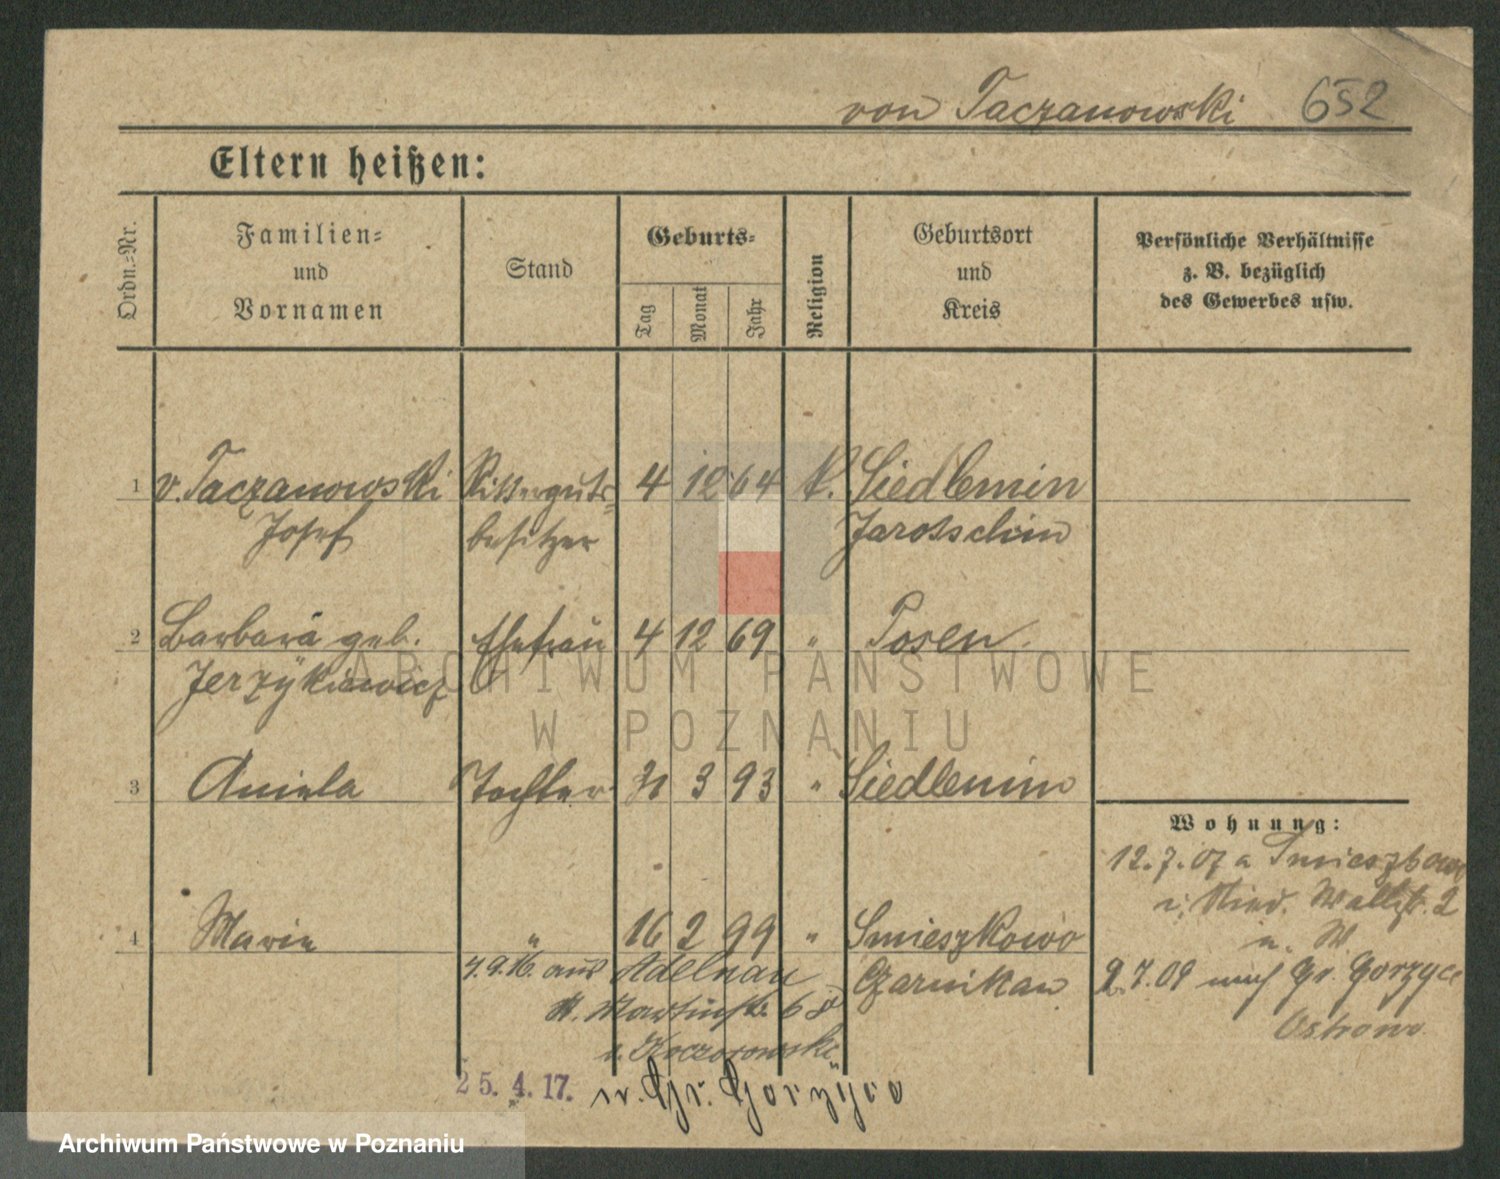 von Taczanowski 652
Eltern heißen:
Ordn.-Nr.
Familien-
und
Vornamen
Stand
Geburts-
Tag
Monat
Jahr
Religion
Geburtsort
und
Kreis
Persönliche Verhältnisse
z. B. bezüglich
des Gewerbes usw.
1 v. Taczanowski Ritterguts- 4 12 64 k. Siedlemin
Josef besitzer Jarotschin
2 Barbara geb. Ehefrau 4 12 69 " Posen
Jerzykiewicz
3 Aniela Tochter 31 3 93 " Siedlemin
Wohnung:
12.7.07 a Smieszkowo
Wallstr. 2
4 Marie " 16 2 99 " Smieszkowo
Czarnikau
2.7.09 nach Gr. Gorzyce
Ostrowo
4.9.16. aus Adelnau
St. Martinstr. 68
v. Koczorowski
25.4.17. n. Gr. Gorzyce
ARCHIWUM PAŃSTWOWE
W POZNANIU
Archiwum Państwowe w Poznaniu